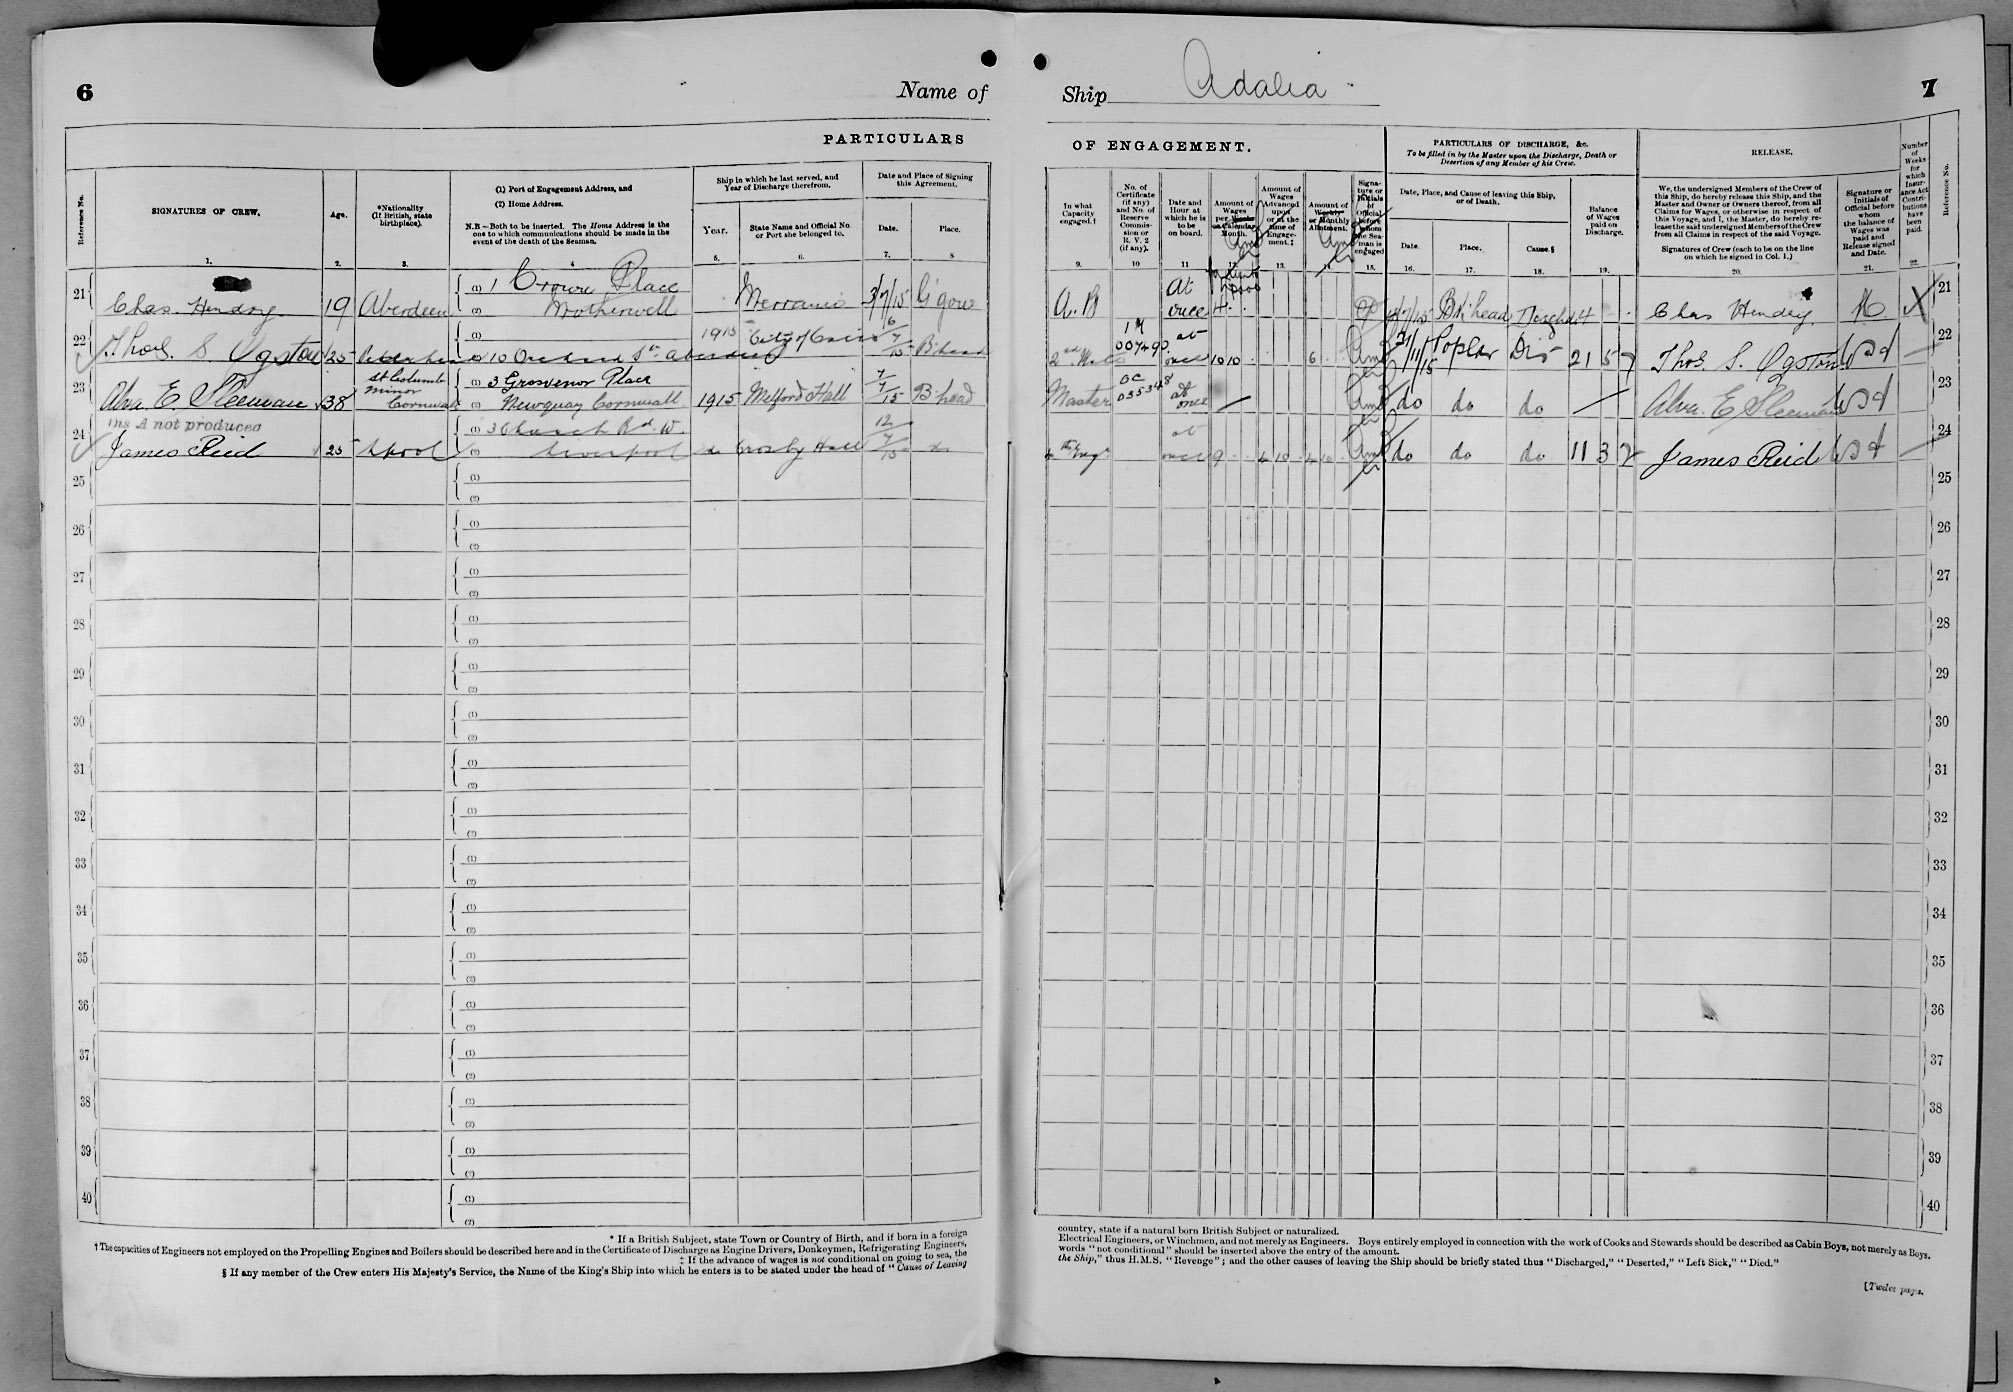 6
Name of
Ship Adalia
7
PARTICULARS
OF ENGAGEMENT.
PARTICULARS OF DISCHARGE, &c.
To be filled in by the Master upon the Discharge, Death or
Desertion of any Member of his Crew.
RELEASE.
Reference No.
SIGNATURES OF CREW.
1.
Age.
2.
*Nationality
(If British, state
birthplace).
3.
(1) Port of Engagement Address, and
(2) Home Address.
N.B—Both to be inserted. The Home Address is the
one to which communications should be made in the
event of the death of the Seaman.
4
Ship in which he last served, and
Year of Discharge therefrom.
Year.
5.
State Name and Official No.
or Port she belonged to.
6.
Date and Place of Signing
this Agreement.
Date.
7.
Place.
8
In what
Capacity
engaged.†
9.
No. of
Certificate
(if any)
and No. of
Reserve
Commis-
sion or
R. V. 2
(if any).
10
Date and
Hour at
which he is
to be
on board.
11
Amount of
Wages
per Week
or Calendar
Month.
12.
Amount of
Wages
Advanced
upon
or at the
time of
Engage-
ment.‡
13.
Amount of
Weekly
or Monthly
Allotment.
Signa-
ture or
Initials
of
Official
before
whom
the Sea-
man is
engaged
15.
Date, Place, and Cause of leaving this Ship,
or of Death.
Date.
16.
Place.
17.
Cause.§
18.
Balance
of Wages
paid on
Discharge.
19.
We, the undersigned Members of the Crew of
this Ship, do hereby release this Ship, and the
Master and Owner or Owners thereof, from all
Claims for Wages, or otherwise in respect of
this Voyage, and I, the Master, do hereby re-
lease the said undersigned Members of the Crew
from all Claims in respect of the said Voyage.
Signatures of Crew (each to be on the line
on which he signed in Col. 1.)
20.
Signature or
Initials of
Official before
whom
the balance of
Wages was
paid and
Release signed
and Date.
21.
Number
of
Weeks
for
which
Insur-
ance Act
Contri-
butions
have
been
paid.
22.
Reference No.
21 Chas. Hendry 19 Aberdeen (1) 1 Crown Place (2) Motherwell 3/7/15 G'gow A.B At once 4 B'head Chas Hendry 21
22 Thos. S. Ogston 25 (1) (2) 10 Orchard St. Aberdeen 1915 City of Cairo 6/7/15 B'head 2nd Mate 007490 at once 10 10 6 21/11/15 Poplar Dis 21 5 7 Thos. S. Ogston 22
23 Alva. E. Sleeman 38 St Columb Minor Cornwall (1) 3 Grosvenor Place (2) Newquay Cornwall 1915 Melford Hall 7/7/15 B'head Master 035348 at once do do do Alva. E. Sleeman 23
Ins A not produced
24 James Reid 25 L'pool (1) 36 Church Rd. W. (2) Liverpool Crosby Hall 12/7/15 4th Eng at once 9 4 10 4 10 do do do 11 3 2 James Reid 24
25 (1) (2) 25
26 (1) (2) 26
27 (1) (2) 27
28 (1) (2) 28
29 (1) (2) 29
30 (1) (2) 30
31 (1) (2) 31
32 (1) (2) 32
33 (1) (2) 33
34 (1) (2) 34
35 (1) (2) 35
36 (1) (2) 36
37 (1) (2) 37
38 (1) (2) 38
39 (1) (2) 39
40 (1) (2) 40
* If a British Subject, state Town or Country of Birth, and if born in a foreign
country, state if a natural born British Subject or naturalized.
† The capacities of Engineers not employed on the Propelling Engines and Boilers should be described here and in the Certificate of Discharge as Engine Drivers, Donkeymen, Refrigerating Engineers,
Electrical Engineers, or Winchmen, and not merely as Engineers. Boys entirely employed in connection with the work of Cooks and Stewards should be described as Cabin Boys, not merely as Boys.
‡ If the advance of wages is not conditional on going to sea, the
words "not conditional" should be inserted above the entry of the amount.
§ If any member of the Crew enters His Majesty's Service, the Name of the King's Ship into which he enters is to be stated under the head of "Cause of Leaving
the Ship," thus H.M.S. "Revenge"; and the other causes of leaving the Ship should be briefly stated thus "Discharged," "Deserted," "Left Sick," "Died."
[Twelve pages.